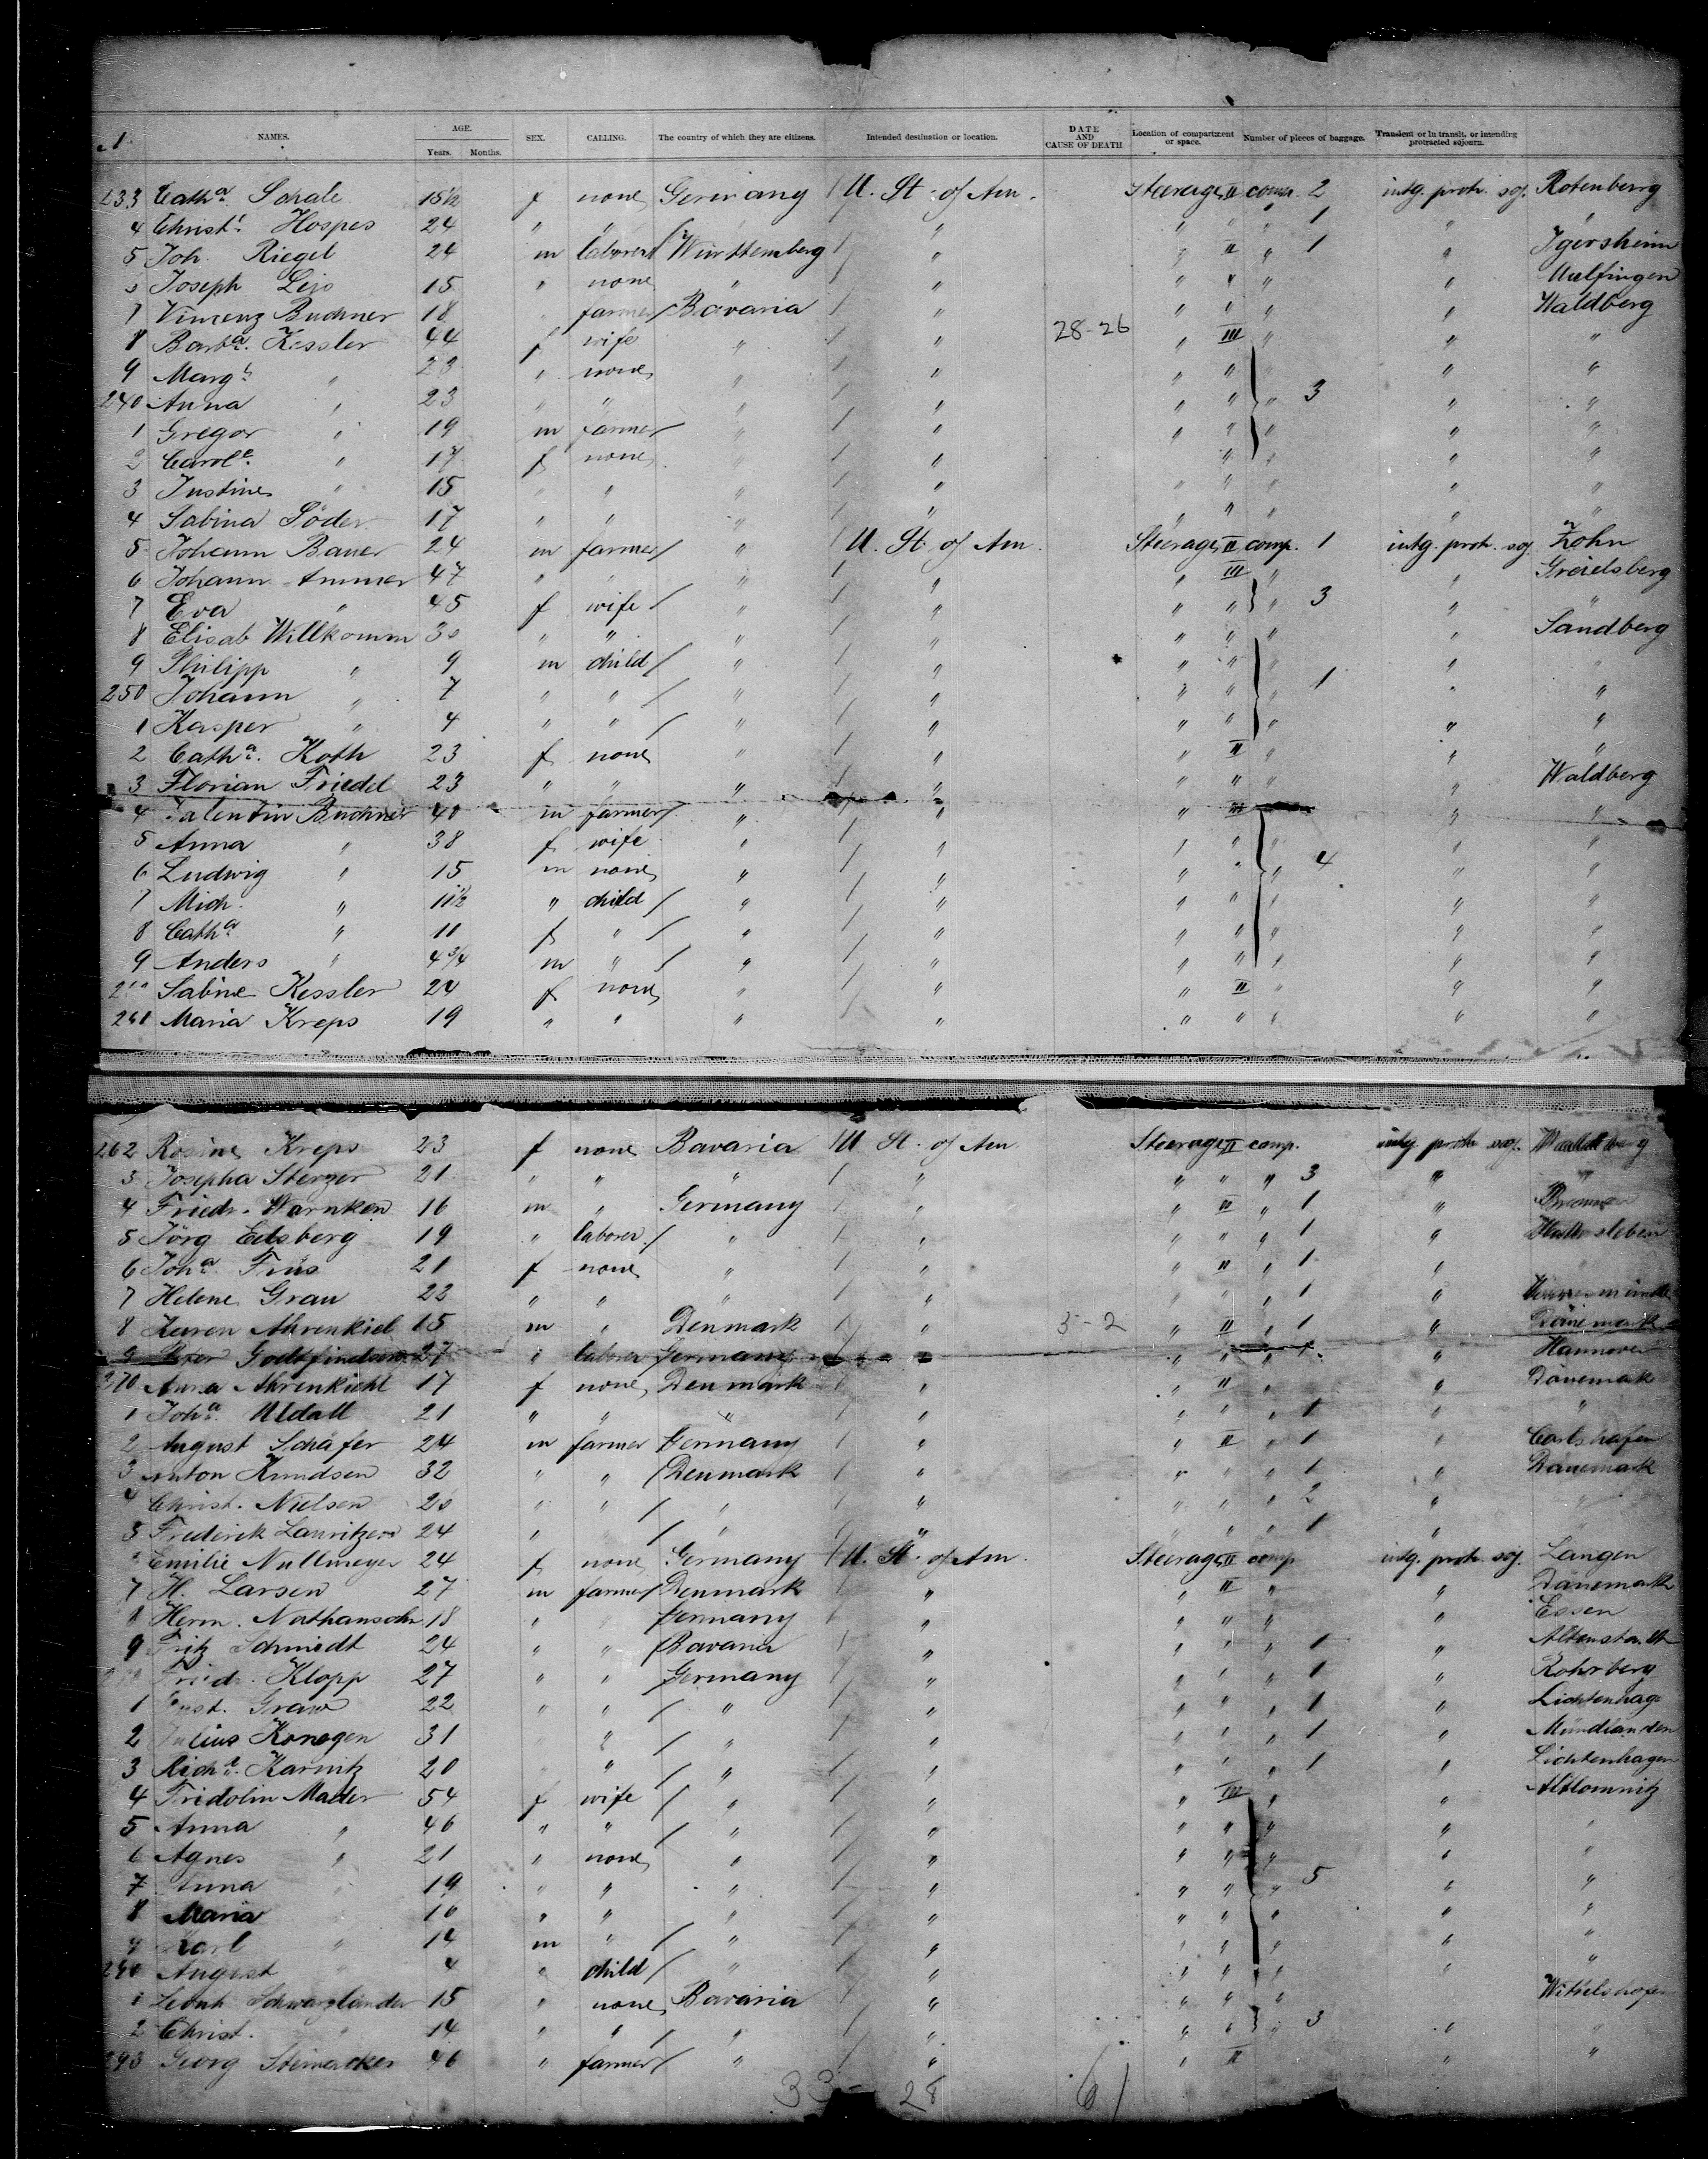 1. NAMES. AGE. Years. Months. SEX. CALLING. The country of which they are citizens. Intended destination or location. DATE AND CAUSE OF DEATH Location of compartment or space. Number of pieces of baggage. Transient or in transit, or intending protracted sojourn.
233 Cathᵃ. Schale 15½ f none Germany / U. St. of Am. Steerage II comp. 2 intg. protr. soj. Rotenberg
4 Christ. Hospes 24 " " " " " " 1 " "
5 Joh. Riegel 24 m laborer / Württemberg / " " II " 1 " Igersheim
6 Joseph 15 " none " / " " " " " Mulfingen
7 Vincenz Buchner 18 farmer / Bavaria / " " " " " Waldberg
8 Barbᵃ. Kessler 44 f wife " / " 28-26 " III " " "
9 Margᵗ. " 23 " none " / " " " " " "
240 Anna " 23 " " " / " " " " 3 " "
1 Gregor " 19 m farmer / " / " " " " " "
2 Carolᵉ. " 17 f none " / " " " " "
3 Justine " 15 " " " / " " " " " "
4 Sabina Söder 17 " " " / " " " " " "
5 Johann Bauer 24 m farmer / " / U. St. of Am. Steerage II comp. 1 intg. protr. soj. Zohn
6 Johann Ammer 47 " " " / " " III " "
7 Eva " 45 f wife / " / " " " " 3 " "
8 Elisab Willkomm 30 " " " / " " " " " Sandberg
9 Philipp " 9 m child / " / " " " " " "
250 Johann " 7 " " / " / " " " " 1 " "
1 Kasper " 4 " " / " / " " " " " "
2 Cathᵃ. Koth 23 f none " / " " II " " "
3 Florian Friedel 23 " " " / " " " " " Waldberg
4 Valentin Buchner 40 m farmer / " " " III " "
5 Anna " 38 f wife " / " " " " " "
6 Ludwig " 15 m none " / " " " " 4 " "
7 Mich. " 11½ " child / " / " " " " " "
8 Cathᵃ " 11 f " / " / " " " " " "
9 Anders " 4¾ m " / " / " " " " " "
260 Sabine Kessler 24 f none " " " II " " "
261 Maria Kreps 19 " " " " " " " " "
262 Rosine Kreps 23 f none Bavaria / U St. of Am Steerage II comp. intg. protr. soj. Waldberg
3 Josepha Sterzer 21 " " " / " " " " 3 " "
4 Friedr. Warnken 16 m " Germany / " " II " 1 " Bremen
5 Jörg Edsberg 19 " laborer / " / " " " " 1 "
6 Johᵃ. 21 f none " / " " II " 1 "
7 Helene Grau 22 " " " / " " " " 1 "
8 Karen Ahrenkiel 15 m " Denmark / " 5-2 " II " 1 " Dänemark
9 27 " laborer Germany " " " " " Hannover
270 Anna Ahrenkiehl 17 f none Denmark / " " II " " Dänemark
1 Johᵃ. Uldall 21 " " " / " " " " 1 " "
2 August Schäfer 24 m farmer Germany / " " II " 1 " Carlshafen
3 Anton Knudsen 32 " " / Denmark / " " " " 1 " Dänemark
4 Christ. Nielsen " " / " / " " " " 2 " "
5 Frederik Lauritzen 24 " / " / " " " " 1 "
Emilie Nullmeyer 24 f none Germany / U. St. of Am. Steerage II comp intg. protr. soj. Langen
7 H. Larsen 27 m farmer / Denmark / " " II " " Dänemark
8 Herm. Nathansohn 18 " Germany / " " " " " Essen
9 Fritz Schmiedt 24 " " / Bavaria / " " " " 1 "
Friedr. Klopp 27 " " Germany / " " " " 1 " Rohrberg
1 Grau 22 " " / " / " " " " 1 " Lichtenhag
2 Julius Konegen 31 " / " / " " " " 1 "
3 Richᵈ. Karnitz 20 " / " / " " " " 1 " Lichtenhagen
4 Fridolin Mader 54 f wife / " / " " III " " Altlomnitz
5 Anna " 46 " " / " / " " " " " "
6 Agnes " 21 " none " / " " " " " "
7 Anna 19 " " " / " " " " 5 " "
8 Maria " " " / " " " " " "
9 Karl " 14 m " / " / " " " " " "
290 August " 4 " child / " / " " " " " "
1 Leonh Schwarzländer 15 " none Bavaria / " " " "
2 Christ. " 14 " " / " / " " " " 3 " "
293 Georg Steinacker 46 " farmer / " / " " II " "
33 - 28 61